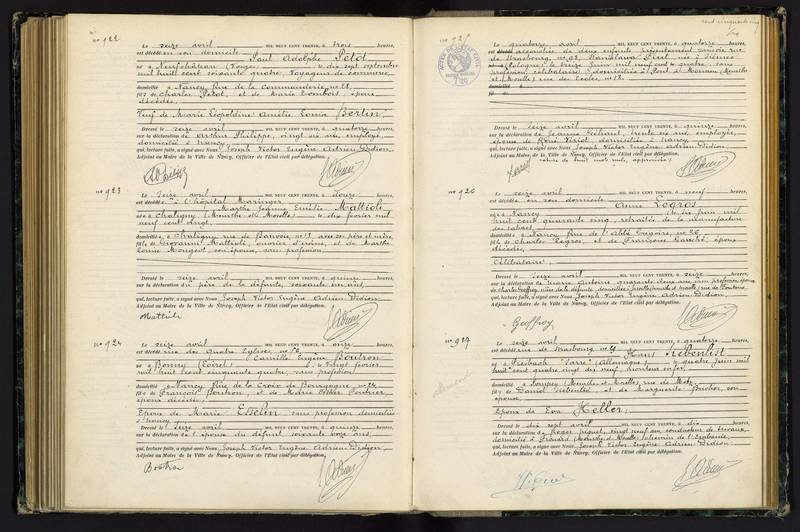 no 922
Le seize avril MIL NEUF CENT TRENTE, à trois heures,
est décédé en son domicile Paul Adolphe Petot
né à Neufchâteau (Vosges) le dix sept septembre
mil huit cent soixante quatre, voyageur de commerce,
domicilié à Nancy rue de la Commanderie, no 28,
fils de Charles Petot, et de Marie Lombois, époux
décédés,
Veuf de Marie Léopoldine Amélie Louia Bertin,
Dressé le seize avril à quatorze heures,
sur la déclaration de Arthur Philippe, vingt six ans, employé,
domicilié à Nancy,
qui, lecture faite, a signé avec Nous Joseph Victor Eugène Adrien Didion,
Adjoint au Maire de la Ville de Nancy, Officier de l'Etat civil par délégation.
no 923
Le seize avril MIL NEUF CENT TRENTE, à douze heures,
est décédée à l'hôpital Maringer
Marthe Jeanne Emilie Mattioli
née à Chaligny (Meurthe et Moselle) le dix février mil
neuf cent vingt
domiciliée à Chaligny, rue de Banvoie, no 18, avec ses père et mère
fille de Giovanni Mattioli, ouvrier d'usine, et de Marthe
Louise Mougeot, son épouse, sans profession,
Dressé le seize avril à quinze heures,
sur la déclaration du père de la défunte,
qui, lecture faite, a signé avec Nous Joseph Victor Eugène Adrien Didion,
Adjoint au Maire de la Ville de Nancy, Officier de l'Etat civil par délégation.
Mattioli
no 924
Le seize avril MIL NEUF CENT TRENTE, à onze heures,
est décédé rue des Quatre Eglises, no 76,
Camille Eugène Boutron
né à Bonny (Loiret) le vingt février
mil huit cent cinquante quatre, sans profession,
domicilié à Nancy rue de la Croix de Bourgogne, no 24,
fils de François Boutron, et de Marie
époux décédés,
Epoux de Marie Esselin sans profession domiciliée
à Nancy
Dressé le seize avril à quinze heures,
sur la déclaration de l'épouse du défunt, soixante onze ans,
qui, lecture faite, a signé avec Nous Joseph Victor Eugène Adrien Didion,
Adjoint au Maire de la Ville de Nancy, Officier de l'Etat civil par délégation.
no 925
Le quatorze avril MIL NEUF CENT TRENTE, à quatorze heures,
est accouchée de deux enfants présentement sans vie rue
de Strasbourg, no 98, Stanislawa née à
(Pologne) le treize juin mil neuf cent quatre, sans
profession, célibataire, domiciliée à Pont à Mousson (Meurthe
et Moselle) rue des Ecoles, no 28.
domicilié
Dressé le seize avril à quinze heures,
sur la déclaration de Jeanne trente six ans, employée,
épouse de René Viriot, domiciliée à Nancy
qui, lecture faite, a signé avec Nous Joseph Victor Eugène Adrien Didion,
Adjoint au Maire de la Ville de Nancy, Officier de l'Etat civil par délégation.
no 926
Le seize avril MIL NEUF CENT TRENTE, à neuf heures,
est décédée en son domicile Anne Legros
née à Nancy le dix juin mil
huit cent quarante cinq, retraitée de la manufacture
des tabacs,
domiciliée à Nancy rue de l'Abbé Grégoire, no 26
fille de Charles Legros, et de Françoise époux
décédés,
Célibataire,
Dressé le seize avril à seize heures,
sur la déclaration de Marie Antoine, quarante deux ans, sans profession, épouse
de Charles Geoffroy, nièce de la défunte
qui, lecture faite, a signé avec Nous Joseph Victor Eugène Adrien Didion,
Adjoint au Maire de la Ville de Nancy, Officier de l'Etat civil par délégation.
Geoffroy
no 927
Le seize avril MIL NEUF CENT TRENTE, à quatorze heures,
est décédé rue de Strasbourg, no 4, Hans Siebenlist
né à Sarre (Allemagne) le quatre juin mil
huit cent quatre vingt dix neuf,
domicilié à Longwy (Meurthe et Moselle), rue de Metz
fils de Daniel Siebenlist et de Marguerite Bucher, son
épouse,
Epoux de Eva Heller,
Dressé le dix sept avril à dix heures,
sur la déclaration de Roger Piquet, vingt neuf ans conducteur de travaux,
domicilié à Frouard (Meurthe et Moselle) chemin de l'Embanie,
qui, lecture faite, a signé avec Nous Joseph Victor Eugène Adrien Didion,
Adjoint au Maire de la Ville de Nancy, Officier de l'Etat civil par délégation.